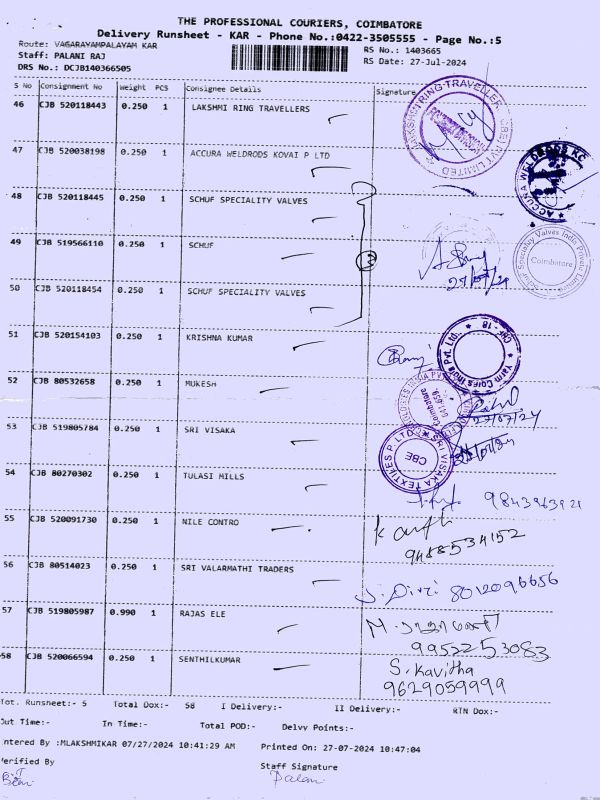 THE PROFESSIONAL COURIERS, COIMBATORE
Delivery Runsheet - KAR - Phone No.:0422-3505555 - Page No.:5
Route: VAGARAYAMPALAYAM KAR
RS No.: 1403665
Staff: PALANI RAJ
RS Date: 27-Jul-2024
DRS No.: DCJB140366505
S No Consignment No Weight PCS Consignee Details Signature
46 CJB 520118443 0.250 1 LAKSHMI RING TRAVELLERS
47 CJB 520038198 0.250 1 ACCURA WELDRODS KOVAI P LTD
48 CJB 520118445 0.250 1 SCHUF SPECIALITY VALVES
49 CJB 519566110 0.250 1 SCHUF
Coimbatore
27/07/24
50 CJB 520118454 0.250 1 SCHUF SPECIALITY VALVES
3
51 CJB 520154103 0.250 1 KRISHNA KUMAR
52 CJB 80532658 0.250 1 MUKESH
27/07/24
53 CJB 519805784 0.250 1 SRI VISAKA
SRI VISAKA TEXTILES P LTD
CBE
54 CJB 80270302 0.250 1 TULASI MILLS
9843963921
55 CJB 520091730 0.250 1 NILE CONTRO
9488534152
56 CJB 80514023 0.250 1 SRI VALARMATHI TRADERS
8012096656
57 CJB 519805987 0.990 1 RAJAS ELE
9952253083
58 CJB 520066594 0.250 1 SENTHILKUMAR
S. Kavitha
9629059999
Tot. Runsheet:- 5 Total Dox:- 58 I Delivery:- II Delivery:- RTN Dox:-
Out Time:- In Time:- Total POD:- Delvy Points:-
ntered By :MLAKSHMIKAR 07/27/2024 10:41:29 AM Printed On: 27-07-2024 10:47:04
erified By Staff Signature
Palani